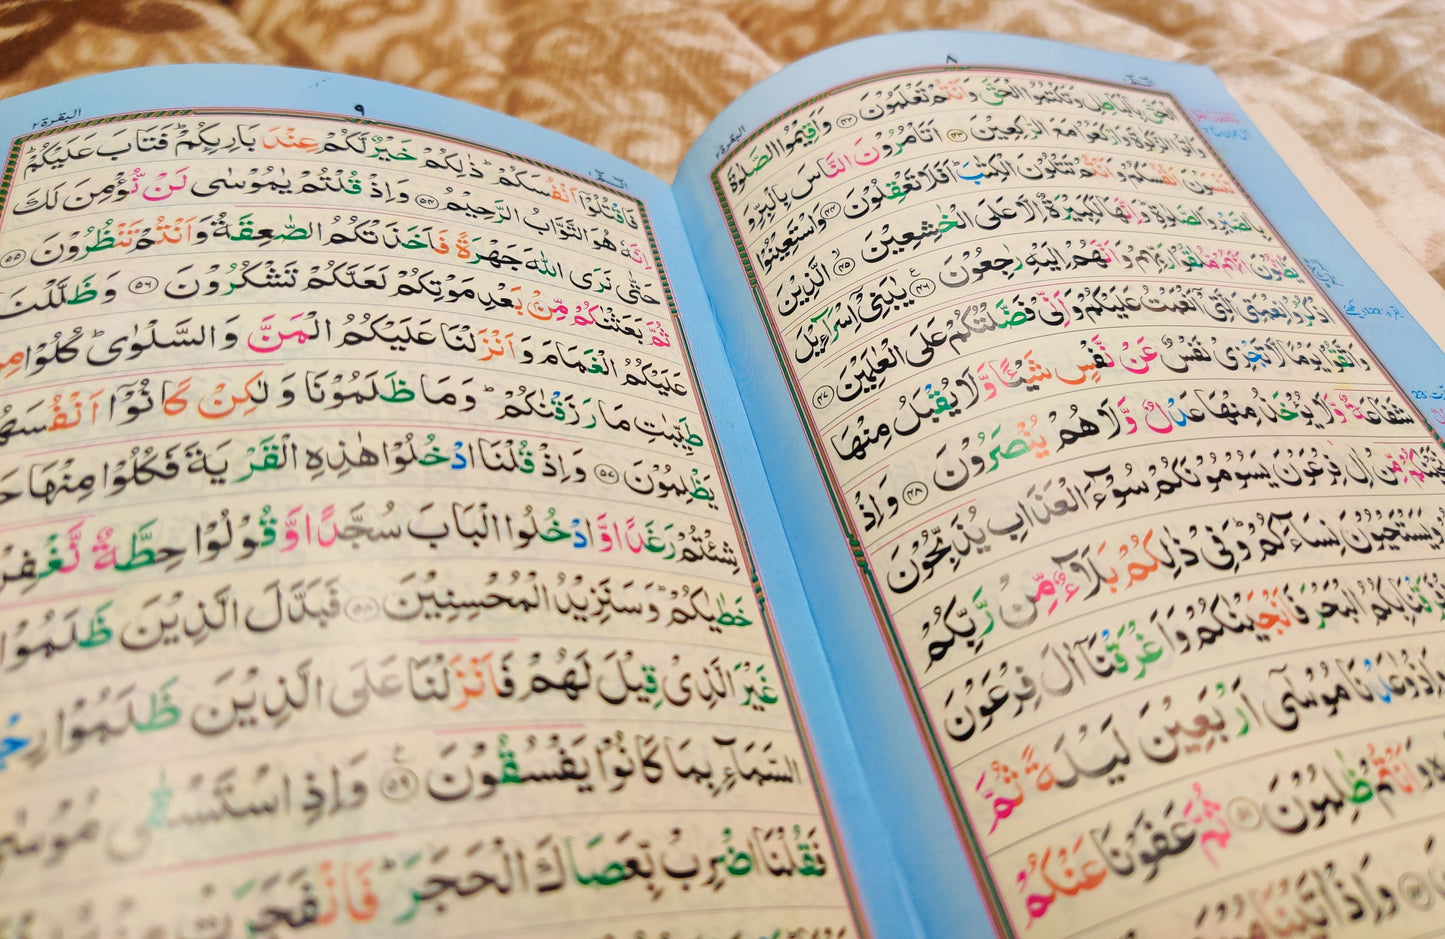 ٨
البقرة ٢
الْحَقَّ بِالْبَاطِلِ وَتَكْتُمُوا الْحَقَّ وَاَنْتُمْ تَعْلَمُوْنَ ﴿٤٢﴾ وَاَقِيْمُوا الصَّلٰوةَ
وَاٰتُوا الزَّكٰوةَ وَارْكَعُوْا مَعَ الرّٰكِعِيْنَ ﴿٤٣﴾ اَتَاْمُرُوْنَ النَّاسَ بِالْبِرِّ وَ
تَنْسَوْنَ اَنْفُسَكُمْ وَاَنْتُمْ تَتْلُوْنَ الْكِتٰبَ ؕ اَفَلَا تَعْقِلُوْنَ ﴿٤٤﴾ وَاسْتَعِيْنُوْا
بِالصَّبْرِ وَالصَّلٰوةِ ؕ وَاِنَّهَا لَكَبِيْرَةٌ اِلَّا عَلَى الْخٰشِعِيْنَ ﴿٤٥﴾ الَّذِيْنَ
يَظُنُّوْنَ اَنَّهُمْ مُّلٰقُوْا رَبِّهِمْ وَاَنَّهُمْ اِلَيْهِ رٰجِعُوْنَ ﴿٤٦﴾ يٰبَنِيْٓ اِسْرَآءِيْلَ
اذْكُرُوْا نِعْمَتِيَ الَّتِيْٓ اَنْعَمْتُ عَلَيْكُمْ وَاَنِّيْ فَضَّلْتُكُمْ عَلَى الْعٰلَمِيْنَ ﴿٤٧﴾
وَاتَّقُوْا يَوْمًا لَّا تَجْزِيْ نَفْسٌ عَنْ نَّفْسٍ شَيْـًٔا وَّلَا يُقْبَلُ مِنْهَا
شَفَاعَةٌ وَّلَا يُؤْخَذُ مِنْهَا عَدْلٌ وَّلَا هُمْ يُنْصَرُوْنَ ﴿٤٨﴾ وَاِذْ
نَجَّيْنٰكُمْ مِّنْ اٰلِ فِرْعَوْنَ يَسُوْمُوْنَكُمْ سُوْٓءَ الْعَذَابِ يُذَبِّحُوْنَ
وَيَسْتَحْيُوْنَ نِسَآءَكُمْ ؕ وَفِيْ ذٰلِكُمْ بَلَآءٌ مِّنْ رَّبِّكُمْ
فَرَقْنَا بِكُمُ الْبَحْرَ فَاَنْجَيْنٰكُمْ وَاَغْرَقْنَآ اٰلَ فِرْعَوْنَ
وَاِذْ وٰعَدْنَا مُوْسٰٓى اَرْبَعِيْنَ لَيْلَةً ثُمَّ
وَاَنْتُمْ ظٰلِمُوْنَ ﴿٥١﴾ ثُمَّ عَفَوْنَا عَنْكُمْ
وَاِذْ اٰتَيْنَا مُوْسَى
٩
البقرة ٢
فَاقْتُلُوْٓا اَنْفُسَكُمْ ؕ ذٰلِكُمْ خَيْرٌ لَّكُمْ عِنْدَ بَارِىِٕكُمْ ؕ فَتَابَ عَلَيْكُمْ ؕ
اِنَّهٗ هُوَ التَّوَّابُ الرَّحِيْمُ ﴿٥٤﴾ وَاِذْ قُلْتُمْ يٰمُوْسٰى لَنْ نُّؤْمِنَ لَكَ
حَتّٰى نَرَى اللّٰهَ جَهْرَةً فَاَخَذَتْكُمُ الصّٰعِقَةُ وَاَنْتُمْ تَنْظُرُوْنَ ﴿٥٥﴾
ثُمَّ بَعَثْنٰكُمْ مِّنْۢ بَعْدِ مَوْتِكُمْ لَعَلَّكُمْ تَشْكُرُوْنَ ﴿٥٦﴾ وَظَلَّلْنَا
عَلَيْكُمُ الْغَمَامَ وَاَنْزَلْنَا عَلَيْكُمُ الْمَنَّ وَالسَّلْوٰى ؕ كُلُوْا مِنْ
طَيِّبٰتِ مَا رَزَقْنٰكُمْ ؕ وَمَا ظَلَمُوْنَا وَلٰكِنْ كَانُوْٓا اَنْفُسَهُمْ
يَظْلِمُوْنَ ﴿٥٧﴾ وَاِذْ قُلْنَا ادْخُلُوْا هٰذِهِ الْقَرْيَةَ فَكُلُوْا مِنْهَا
شِئْتُمْ رَغَدًا وَّادْخُلُوا الْبَابَ سُجَّدًا وَّقُوْلُوْا حِطَّةٌ نَّغْفِرْ
خَطٰيٰكُمْ ؕ وَسَنَزِيْدُ الْمُحْسِنِيْنَ ﴿٥٨﴾ فَبَدَّلَ الَّذِيْنَ ظَلَمُوْا
غَيْرَ الَّذِيْ قِيْلَ لَهُمْ فَاَنْزَلْنَا عَلَى الَّذِيْنَ ظَلَمُوْا
السَّمَآءِ بِمَا كَانُوْا يَفْسُقُوْنَ ﴿٥٩﴾ وَاِذِ اسْتَسْقٰى مُوْسٰى
فَقُلْنَا اضْرِبْ بِّعَصَاكَ الْحَجَرَ ؕ فَانْفَجَرَتْ